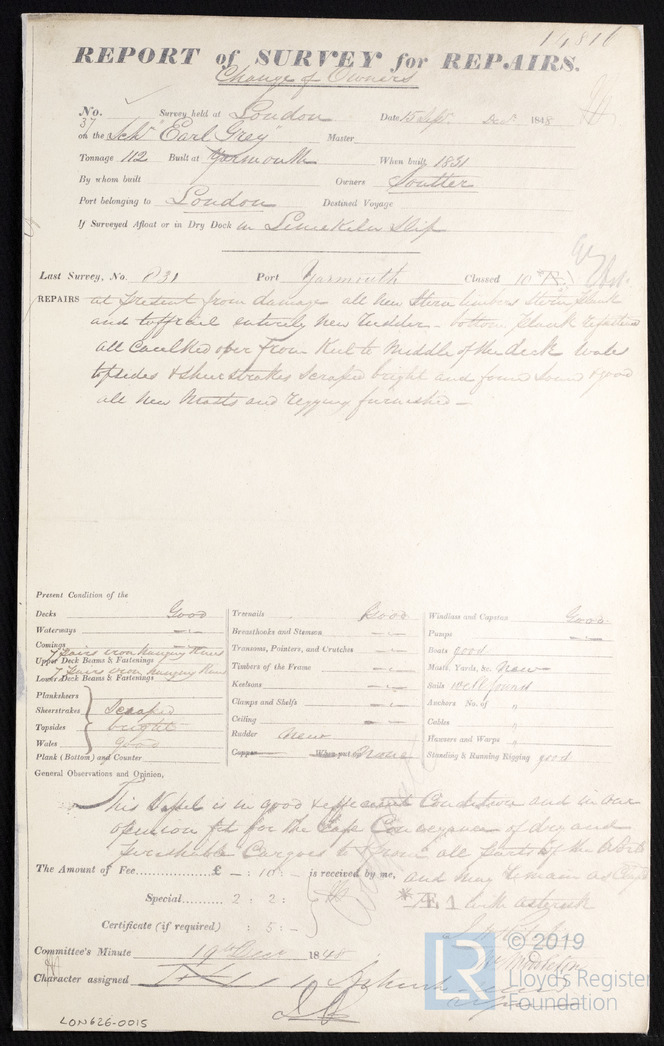 14816
REPORT of SURVEY for REPAIRS.
Change of Owners
No. 37 Survey held at London Date 15 Sepr. Decr. 1848
on the Schr "Earl Grey" Master
Tonnage 112 Built at Yarmouth When built 1831
By whom built Owners Soutter
Port belonging to London Destined Voyage
If Surveyed Afloat or in Dry Dock in Limekiln Slip
Last Survey, No. 831 Port Yarmouth Classed 10
REPAIRS at present from damage all new Stern timbers Stern plank
and taffrail entirely new Rudder - bottom plank
all Caulked over from Keel to Middle of the deck Wales
topsides & Sheerstrakes Scraped bright and found Sound & good
all new Masts and Rigging furnished -
Present Condition of the
Decks Good
Waterways
Comings
7 Pairs iron hanging Knees
Upper Deck Beams & Fastenings
7 Pairs iron hanging Knees
Lower Deck Beams & Fastenings
Planksheers
Sheerstrakes Scraped
Topsides bright
Wales good
Plank (Bottom) and Counter
Treenails Good
Breasthooks and Stemson
Transoms, Pointers, and Crutches
Timbers of the Frame
Keelsons
Clamps and Shelfs
Ceiling
Rudder New
Copper When put None
Windlass and Capstan Good
Pumps
Boats good
Masts, Yards, &c. New
Sails well found
Anchors No. of "
Cables "
Hawsers and Warps "
Standing & Running Rigging good
General Observations and Opinion,
This Vessel is in good & efficient Condition and in our
opinion fit for the safe Conveyance of dry and
perishable Cargoes to & from all parts of the World
The Amount of Fee £ - : 10 : - is received by me, and may remain as
Special 2 : 2 : *Æ 1 with asterisk
Certificate (if required) : 5 : -
Committee's Minute 19th Decr 1848
Character assigned
LON626-0015
LR © 2019
Lloyd's Register
Foundation